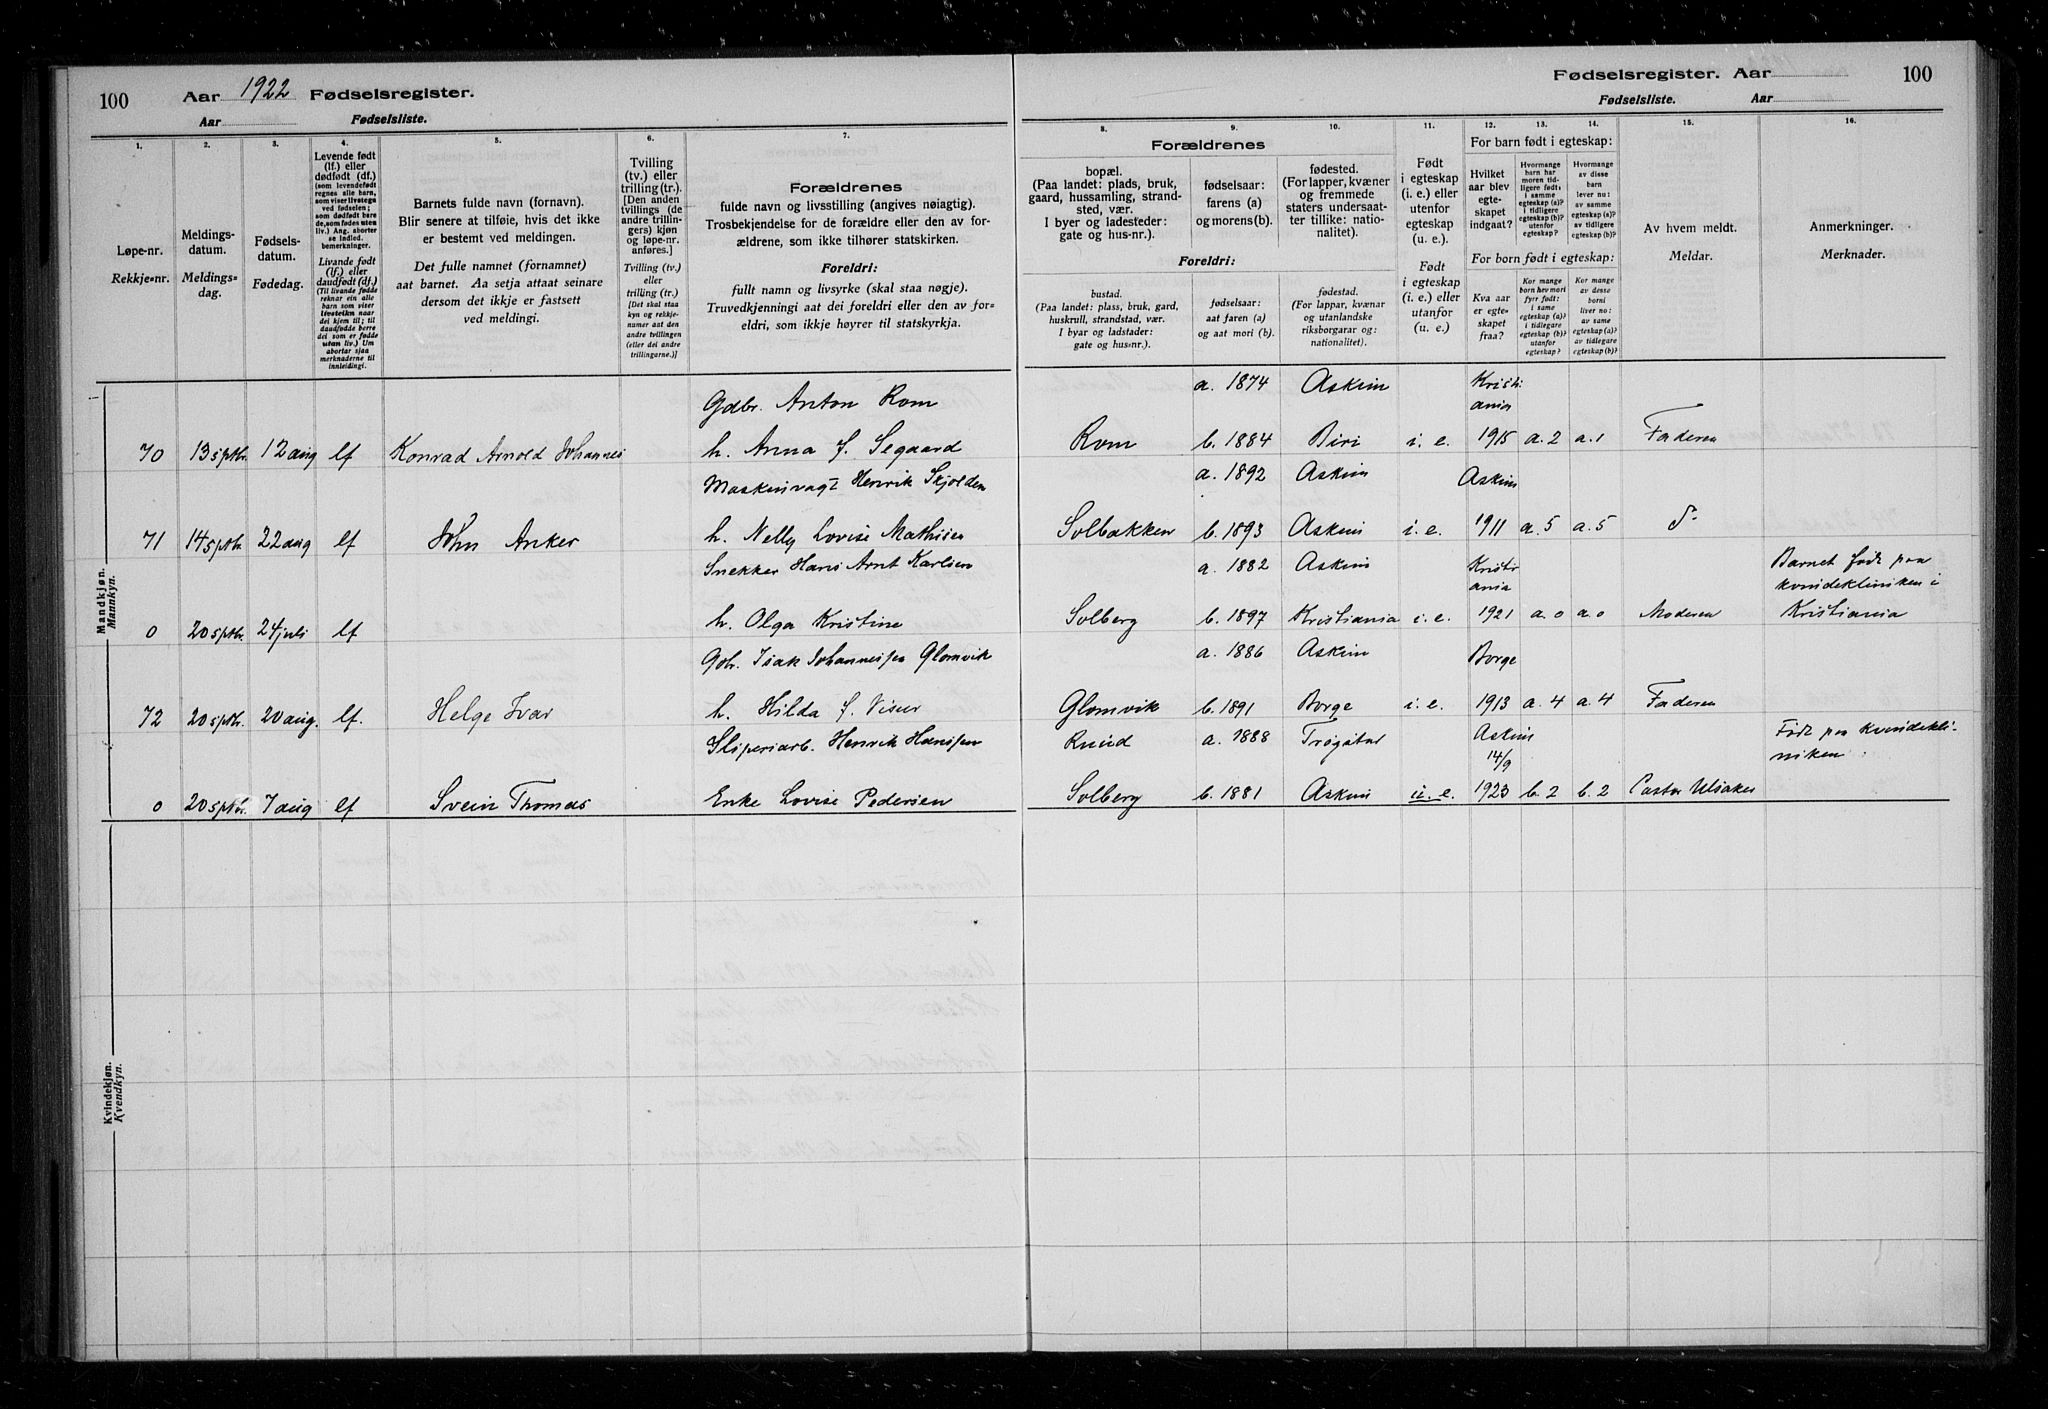 100 Aar 1922 Fødselsregister.
Aar Fødselsliste.
Fødselsregister. Aar 100
Fødselsliste. Aar
1. 2. 3. 4. 5. 6. 7. 8. 9. 10. 11. 12. 13. 14. 15. 16.
Løpe-nr.
Rekkje-nr.
Meldings-
datum.
Meldings-
dag.
Fødsels-
datum.
Fødedag.
Levende født
(lf.) eller
dødfødt (df.)
(som levendefødt
regnes alle barn,
som viser livstegn
ved fødselen;
som dødfødt bare
de, som fødes uten
liv.) Ang. aborter
se indled.
bemerkninger.
Livande født
(lf.) eller
daudfødt (df.)
(Til livande fødde
reknar ein alle
barn som viser
livsteikn naar
dei kjem til; til
daudfødde berre
dei som er fødde
utan liv.) Um
abortar sjaa
merknaderne til
innleidingi.
Barnets fulde navn (fornavn).
Blir senere at tilføie, hvis det ikke
er bestemt ved meldingen.
Det fulle namnet (fornamnet)
aat barnet. Aa setja attaat seinare
dersom det ikkje er fastsett
ved meldingi.
Tvilling
(tv.) eller
trilling (tr.).
[Den anden
tvillings (de
andre trillin-
gers) kjøn
og løpe-nr.
anføres.]
Tvilling (tv.)
eller
trilling (tr.)
[Det skal staa
kyn og rekkje-
numer aat den
andre tvillingen
(eller dei andre
trillingarne.)]
Forældrenes
fulde navn og livsstilling (angives nøiagtig).
Trosbekjendelse for de forældre eller den av for-
ældrene, som ikke tilhører statskirken.
Foreldri:
fullt namn og livsyrke (skal staa nøgje).
Truvedkjenningi aat dei foreldri eller den av for-
eldri, som ikkje høyrer til statskyrkja.
Forældrenes
bopæl.
(Paa landet: plads, bruk,
gaard, hussamling, strand-
sted, vær.
I byer og ladesteder:
gate og hus-nr.).
fødselsaar:
farens (a)
og morens (b).
fødested.
(For lapper, kvæner
og fremmede
staters undersaat-
ter tillike: natio-
nalitet).
Foreldri:
bustad.
(Paa landet: plass, bruk, gard,
huskrull, strandstad, vær.
I byar og ladstader:
gate og hus-nr.).
fødselsaar:
aat faren (a)
og aat mori (b).
fødestad.
(For lappar, kvænar
og utanlandske
riksborgarar og:
nationalitet).
Født
i egteskap
(i. e.) eller
utenfor
egteskap
(u. e.).
Født
i egteskap
(i. e.) eller
utanfor
(u. e.).
For barn født i egteskap:
Hvilket
aar blev
egte-
skapet
indgaat?
Hvormange
barn har
moren tid-
ligere født:
i samme
egteskap (a)?
i tidligere
egteskap (b)?
utenfor
egteskap?
Hvormange
av disse
barn
lever nu:
av samme
egteskap (a)?
av tidligere
egteskap (b)?
For born født i egteskap:
Kva aar
er egte-
skapet
fraa?
Kor mange
born hev mori
fyrr født:
i same
egteskap (a)?
i tidlegare
egteskap (b)?
utanfor
egteskap?
Kor mange
av desse
borni
liver no:
av same
egteskap (a)?
av tidlegare
egteskap (b)?
Av hvem meldt.
Meldar.
Anmerkninger.
Merknader.
Mandkjøn.
Mannkyn.
Gdbr. Anton Rom a. 1874 Askim Kristi
ania
70 13 sptbr. 12 aug lf Konrad Arnold Johannes h. Anna f. Segaard Rom b. 1884 Biri i. e. 1915 a. 2 a. 1 Faderen
Maskinvagt Henrik Skjolden a. 1892 Askim Askim
71 14 sptbr. 22 aug lf John Anker h. Nelly Lovise Mathisen Solbakken b. 1893 Askim i. e. 1911 a. 5 a. 5 d-
Snekker Hans Arnt Karlsen a. 1882 Askim Kristi
ania Barnet født paa
kvindekliniken i
0 20 sptbr. 24 juli lf h. Olga Kristine Solberg b. 1897 Kristiania i. e. 1921 a. 0 a. 0 Moderen Kristiania
Gbr. Isak Johannessen Glomvik a. 1886 Askim Borge
72 20 sptbr. 20 aug. lf. Helge Ivar h. Hilda f. Visur Glomvik b. 1891 Borge i. e. 1913 a. 4 a. 4 Faderen
Sliperiarb. Henrik Hansen Ruud a. 1888 Trøgstad Askim
14/9 Født paa kvindekli-
niken
0 20 sptbr. 7 aug lf Svein Thomas Enke Lovise Pedersen Solberg b. 1881 Askim u. e. 1923 b. 2 b. 2 Pastor Ulsaker
Kvindekjøn.
Kvendkyn.